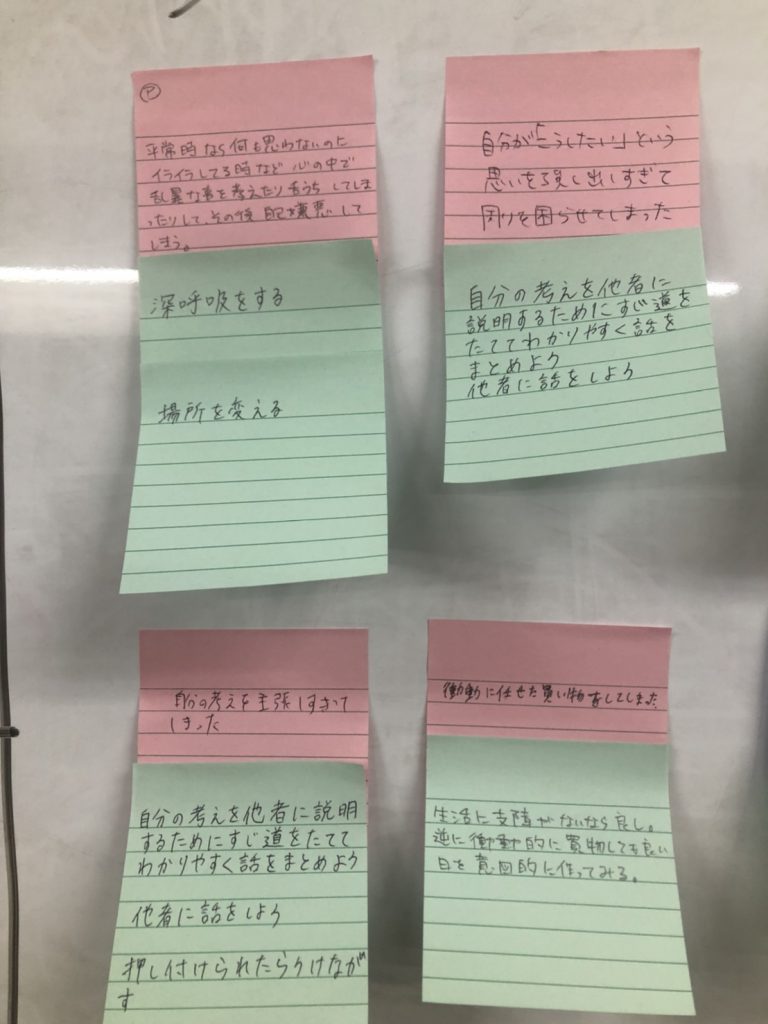 ア
平常時なら何も思わないのに
イライラしてる時など心の中で
乱暴な事を考えたり舌うちしてしま
ったりして、その後自己嫌悪して
しまう。
深呼吸をする
場所を変える
自分が「こうしたい」という
思いを押し出しすぎて
周りを困らせてしまった
自分の考えを他者に
説明するためにすじ道を
たててわかりやすく話を
まとめよう
他者に話をしよう
自分の考えを主張しすぎて
しまった
自分の考えを他者に説明
するためにすじ道をたてて
わかりやすく話をまとめよう
他者に話をしよう
押し付けられたらうけなが
す
衝動に任せた買い物をしてしまった
生活に支障がないなら良し。
逆に衝動的に買物しても良い
日を意図的に作ってみる。